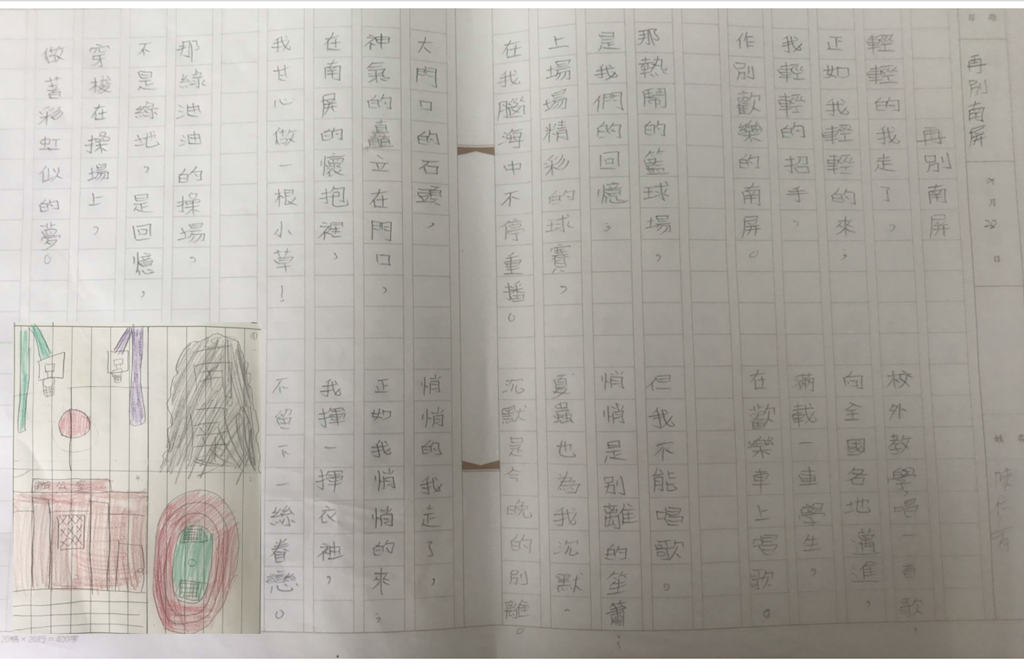 再別南屏
月
日
再別南屏
輕輕的我走了,
正如我輕輕的來;
我輕輕的招手,
作別歡樂的南屏。
那熱鬧的籃球場,
是我們的回憶。
上場場精彩的球賽,
在我腦海中不停重播。
大門口的石頭,
神氣的矗立在門口,
在南屏的懷抱裡,
我甘心做一根小草!
那綠油油的操場,
不是綠地,是回憶,
穿梭在操場上,
做著彩虹似的夢。
校外教學唱一首歌,
向全國各地邁進,
滿載一車學生,
在歡樂車上唱歌。
但我不能唱歌。
悄悄是別離的笙簫;
夏蟲也為我沉默,
沉默是今晚的別離。
悄悄的我走了,
正如我悄悄的來;
我揮一揮衣袖,
不留下一絲眷戀。
南屏
20格×20行=400字